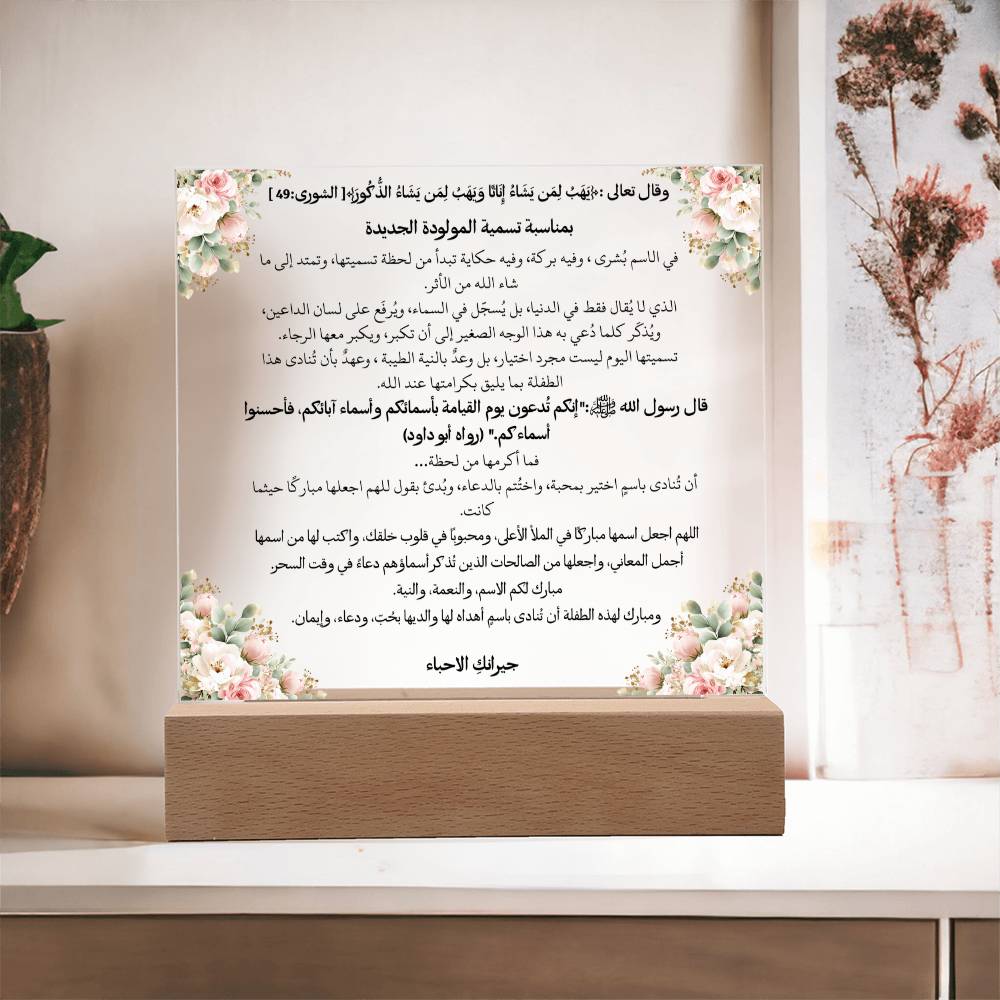 وقال تعالى :﴿يَهَبُ لِمَن يَشَاءُ إِنَاثًا وَيَهَبُ لِمَن يَشَاءُ الذُّكُورَ﴾[ الشورى:49 ]
بمناسبة تسمية المولودة الجديدة
في الاسم بُشرى ، وفيه بركة، وفيه حكاية تبدأ من لحظة تسميتها، وتمتد إلى ما
شاء الله من الأثر.
الذي لا يُقال فقط في الدنيا، بل يُسجّل في السماء، ويُرفَع على لسان الداعين،
ويُذكَر كلما دُعي به هذا الوجه الصغير إلى أن تكبر، ويكبر معها الرجاء.
تسميتها اليوم ليست مجرد اختيار، بل وعدٌ بالنية الطيبة ، وعهدٌ بأن تُنادى هذا
الطفلة بما يليق بكرامتها عند الله.
قال رسول الله ﷺ:"إنكم تُدعون يوم القيامة بأسمائكم وأسماء آبائكم، فأحسنوا
أسماءكم." (رواه أبو داود)
فما أكرمها من لحظة...
أن تُنادى باسمٍ اختير بمحبة، واختُتم بالدعاء، وبُدئ بقول للهم اجعلها مباركًا حيثما
كانت.
اللهم اجعل اسمها مباركًا في الملأ الأعلى، ومحبوبًا في قلوب خلقك، واكتب لها من اسمها
أجمل المعاني، واجعلها من الصالحات الذين تُذكر أسماؤهم دعاءً في وقت السحر.
مبارك لكم الاسم، والنعمة، والنية.
ومبارك لهذه الطفلة أن تُنادى باسمٍ أهداه لها والديها بحُبّ، ودعاء، وإيمان.
جيرانكِ الاحباء